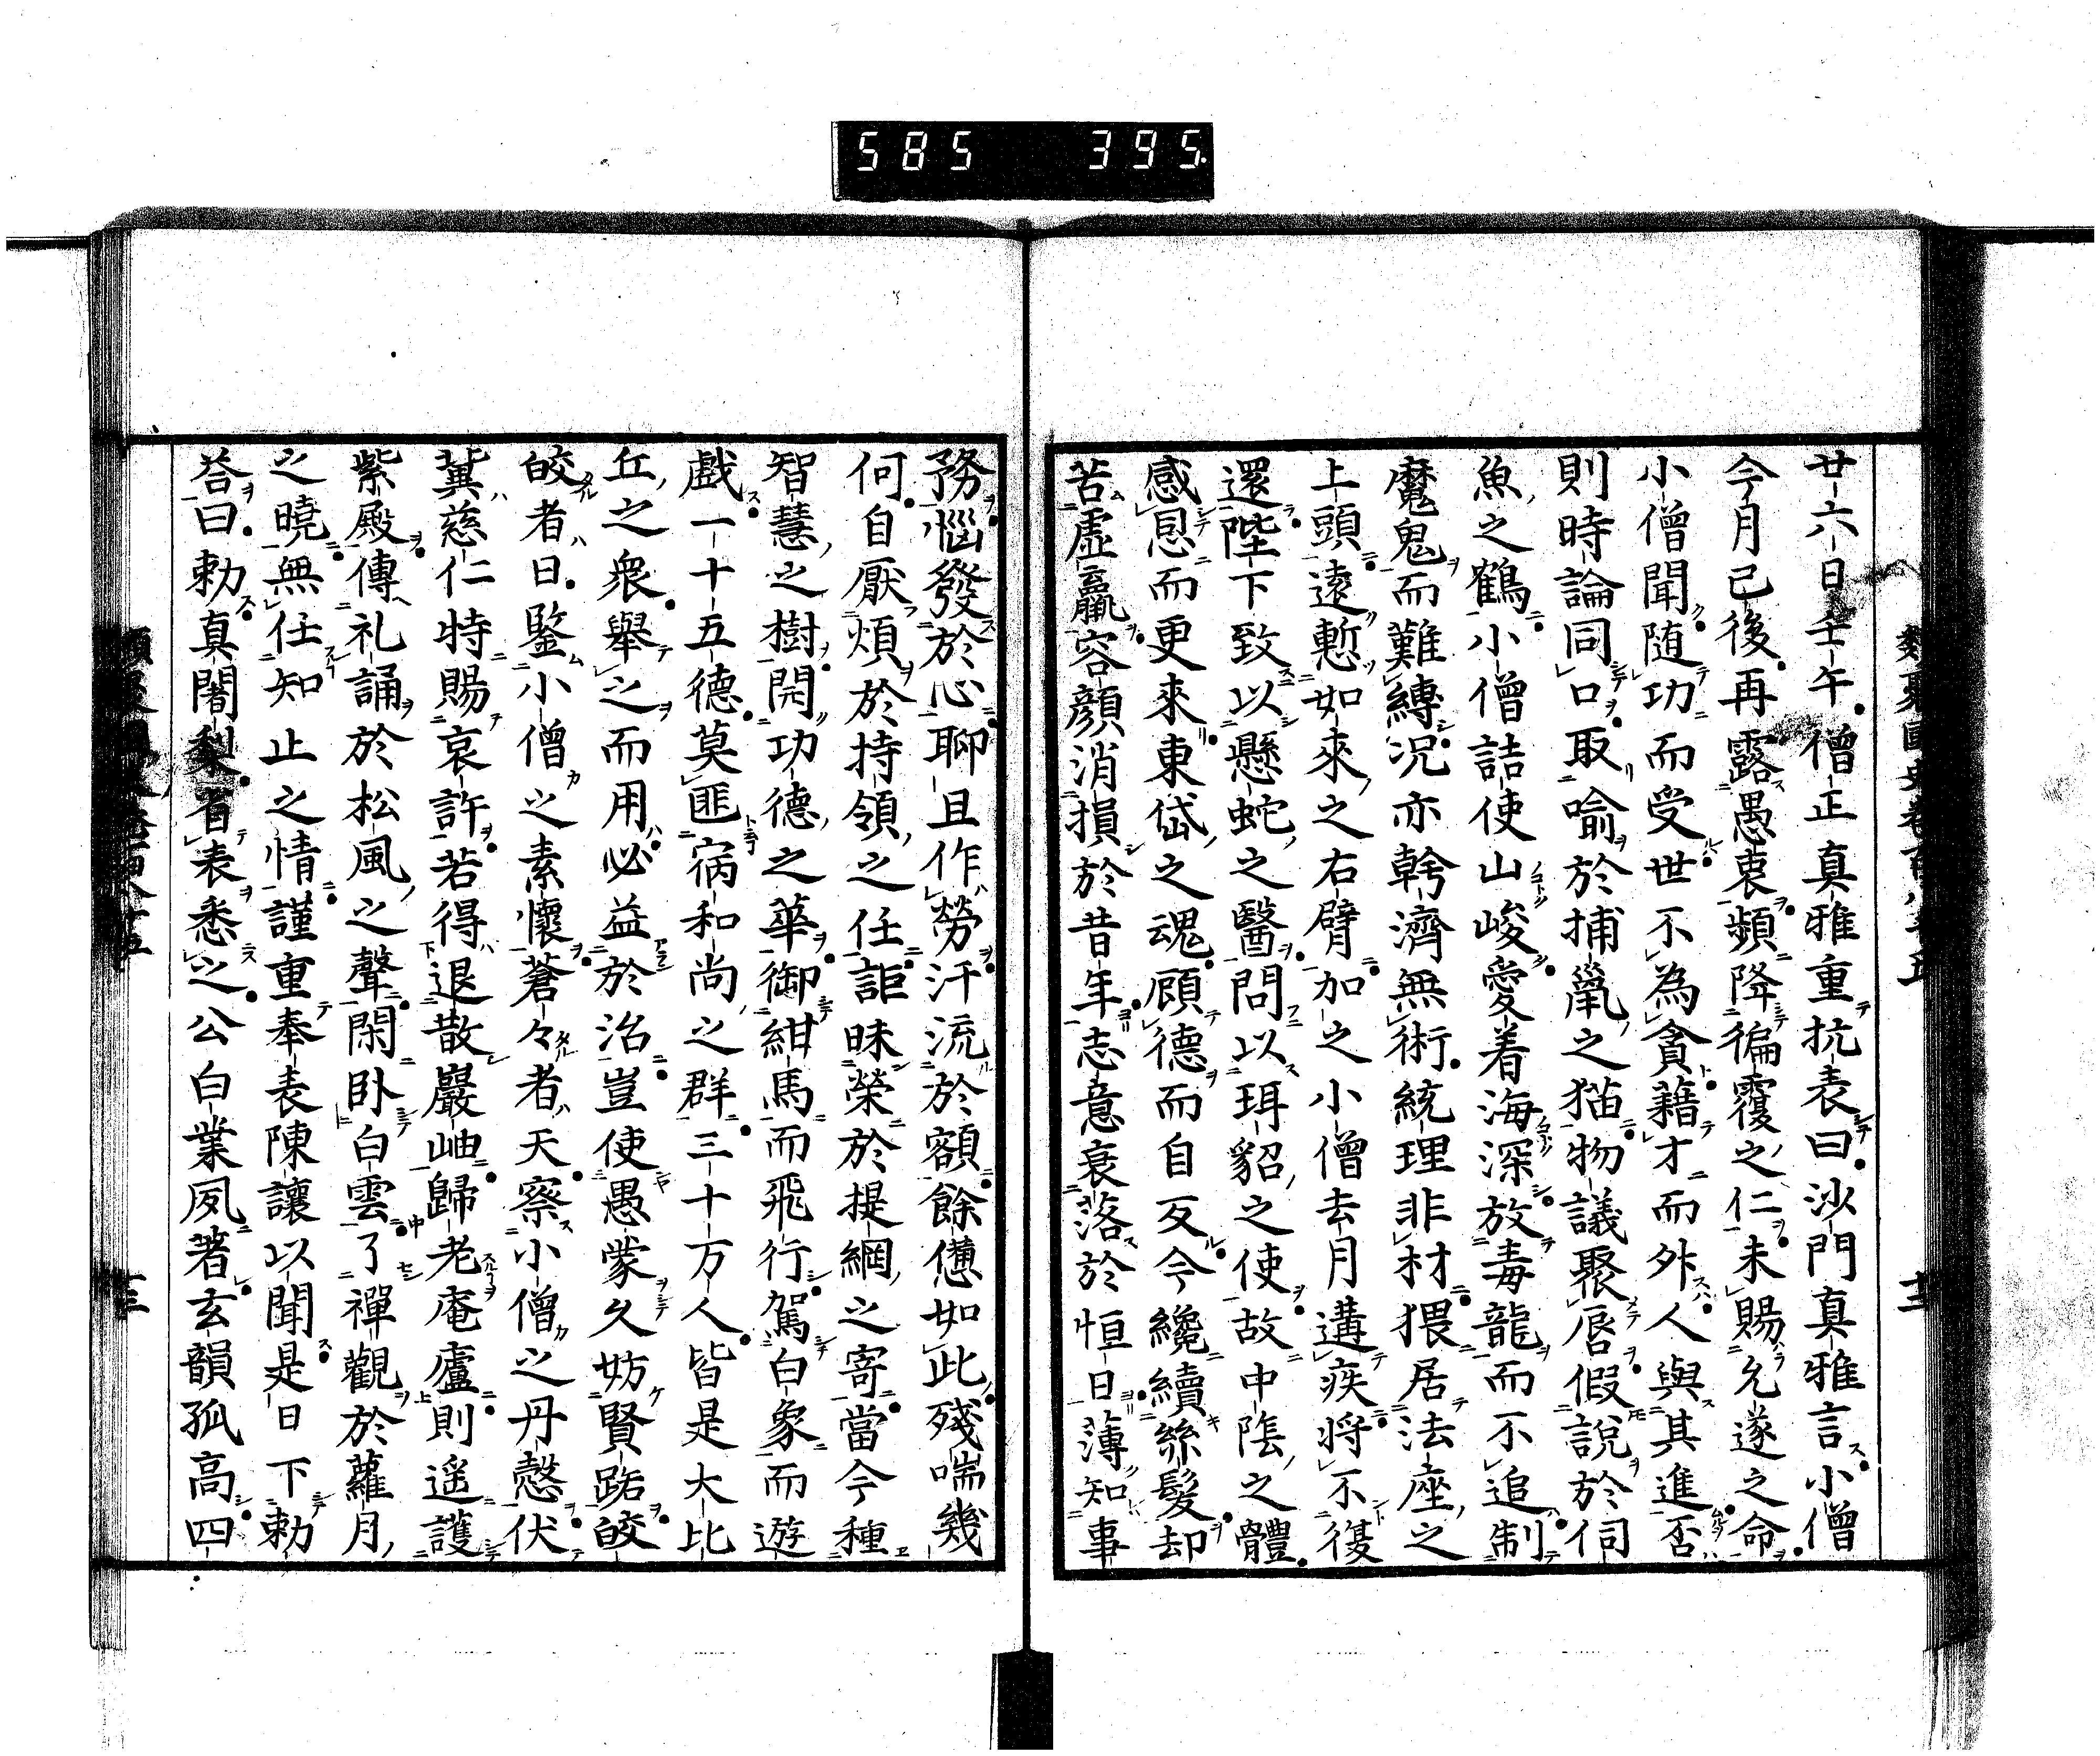 585 395
廿六日壬午僧正真雅重抗表曰沙門真雅言小僧
今月已後再露愚衷頻降徧覆之仁未賜允遂之命
小僧聞随功而受世不為貪藉才而外人與其進否
則時論同口取喻於捕鼠之猫物議聚唇假說於伺
魚之鶴小僧詰使山峻愛着海深放毒龍而不追制
魔鬼而難縛況亦幹濟無術統理非材猥居法座之
上頭遠慙如來之右臂加之小僧去月遘疾将不復
還陛下致以懸蛇之醫問以珥貂之使故中陰之體
感恩而更來東岱之魂顧德而自反今纔續絲髮却
苦虛羸容顏消損於昔年志意衰落於恒日薄知事
務惱發於心聊且作勞汗流於額餘憊如此殘喘幾
何自厭煩於持領之任詎昧榮於提綱之寄當今種
智慧之樹開功德之華御紺馬而飛行駕白象而遊
戲一十五德莫匪病和尚之群三十万人皆是大比
丘之衆舉之而用必益於治豈使愚蒙久妨賢路皎
皎者日鑒小僧之素懷蒼々者天察小僧之丹愨伏
冀慈仁特賜哀許若得退散巖岫歸老庵廬則遥護
紫殿傳礼誦於松風之聲閑卧白雲了禪觀於蘿月
之曉無任知止之情謹重奉表陳讓以聞是日下勅
荅曰勅真闍梨省表悉之公白業夙著玄韻孤高四